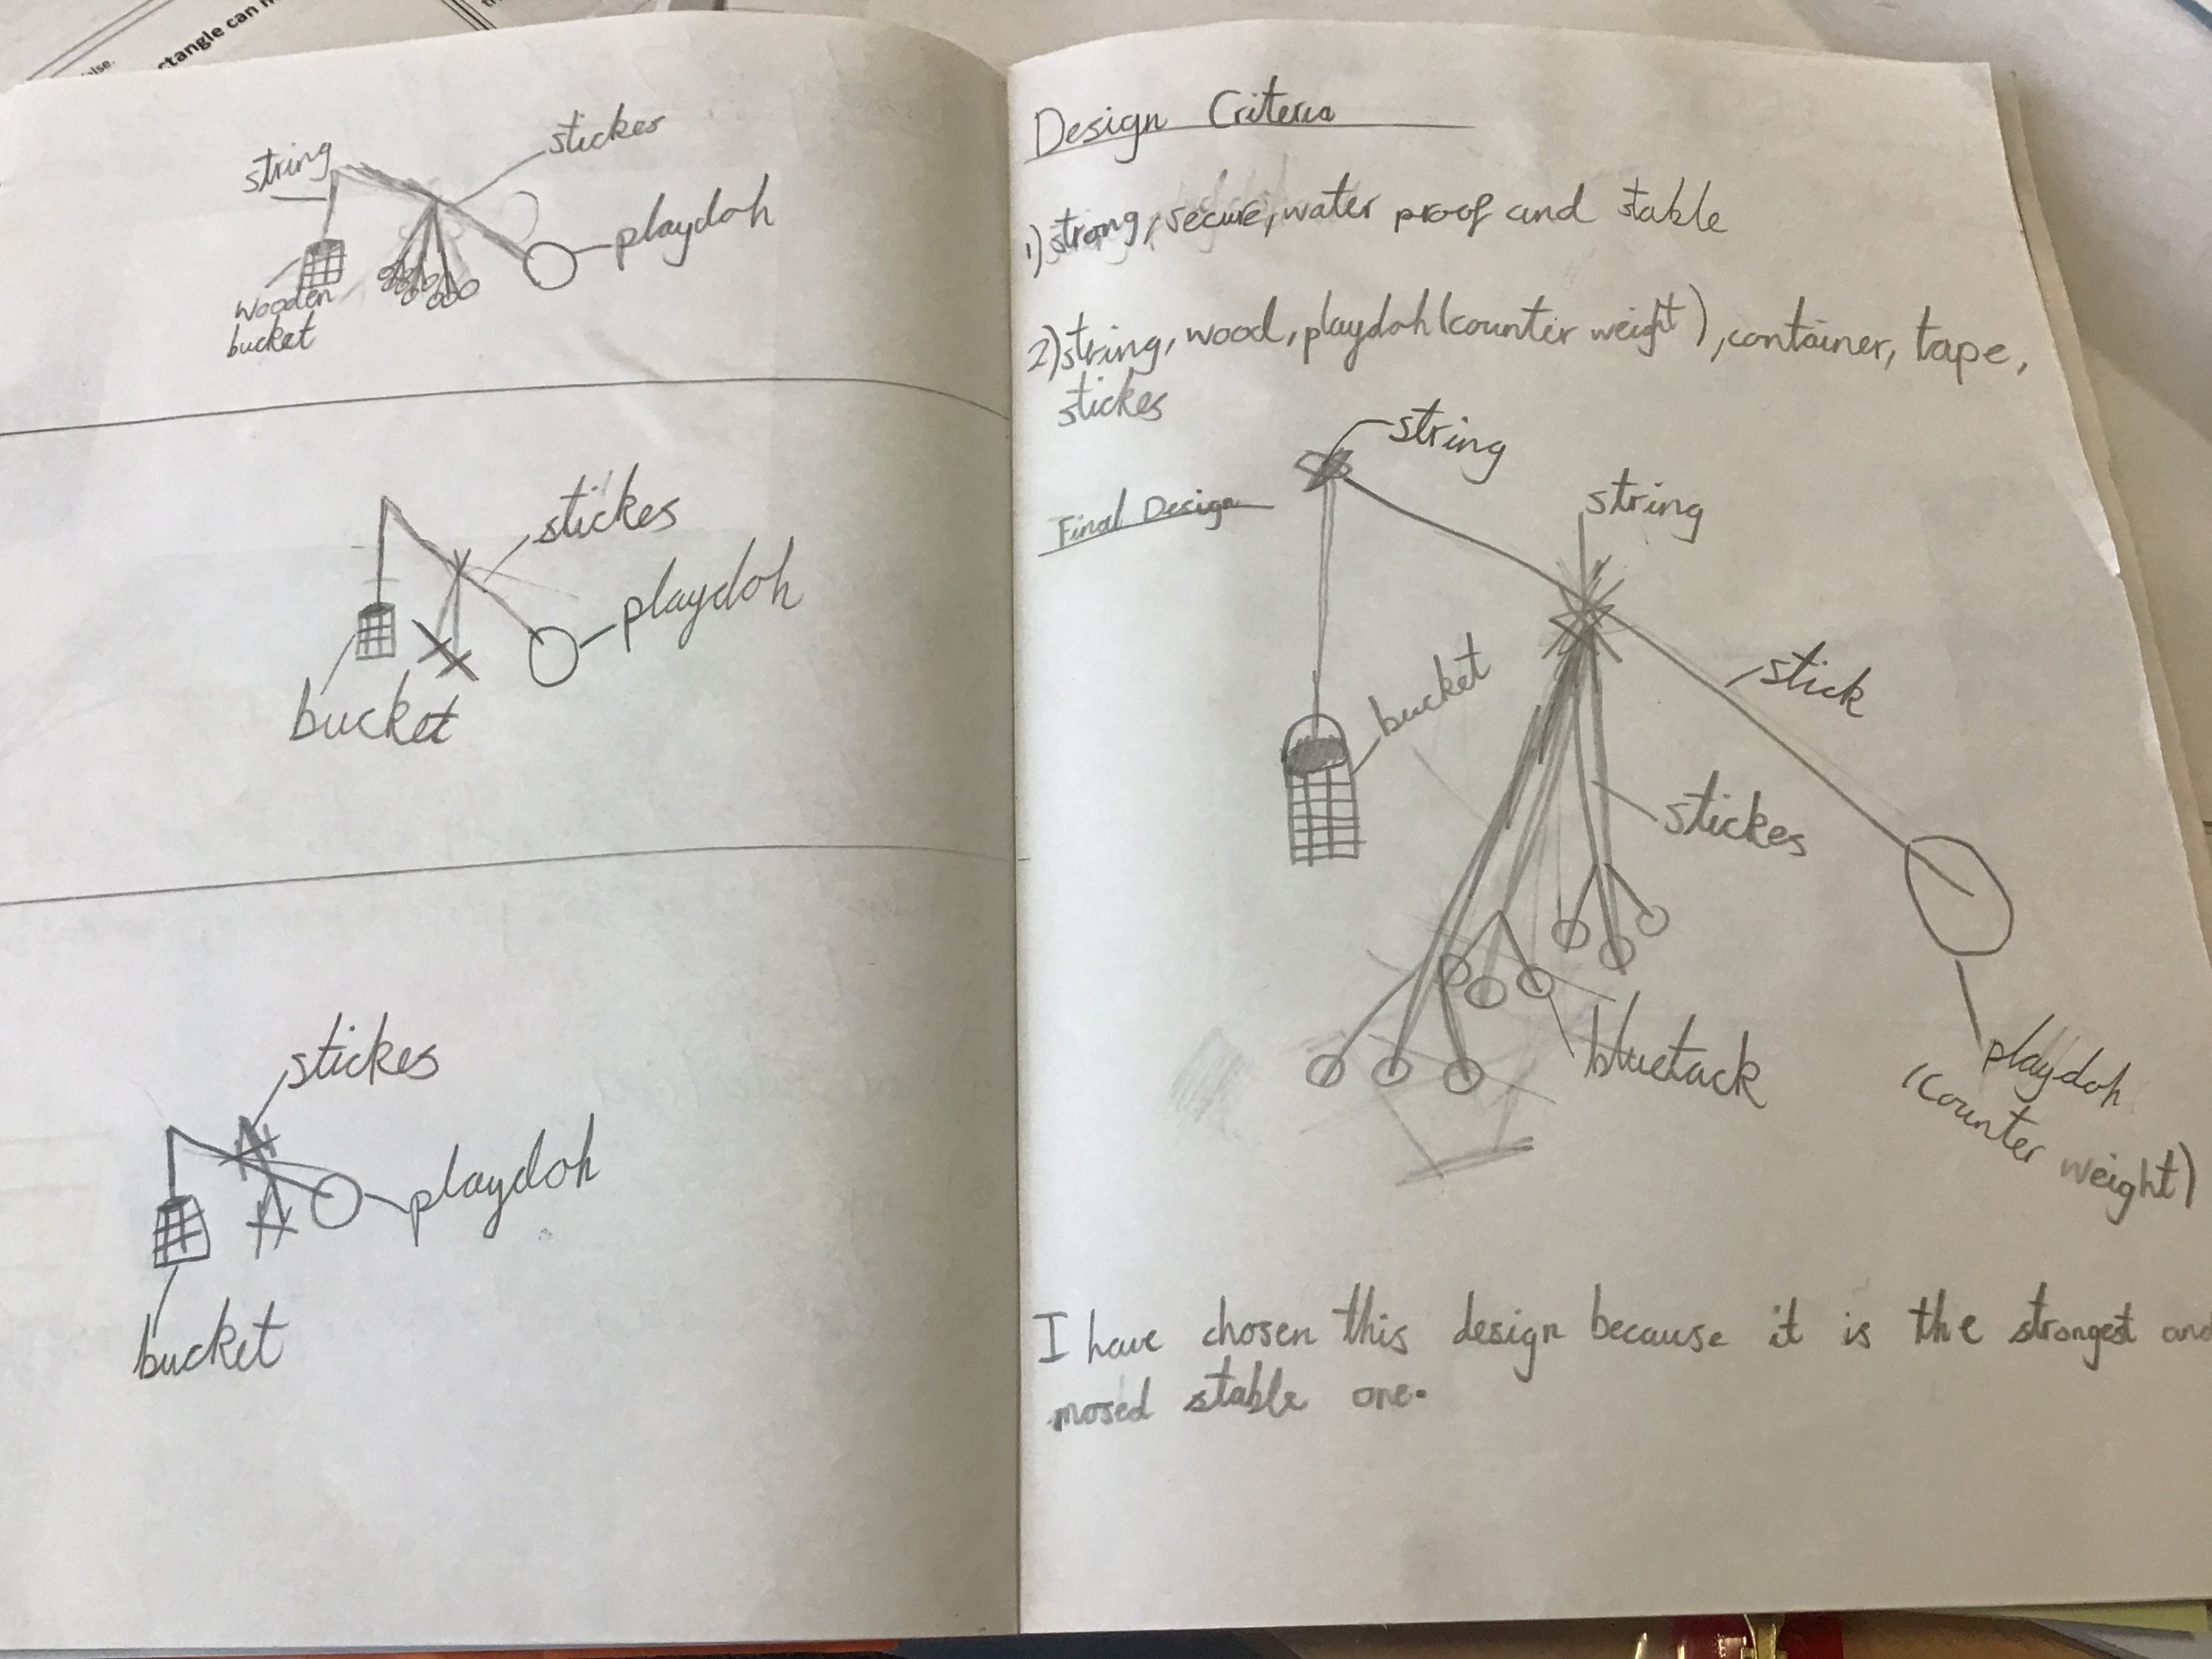 ctangle can
string
stickes
playdoh
wooden
bucket
stickes
playdoh
bucket
stickes
playdoh
bucket
Design Criteria
1) strong, secure, water proof and stable
2) string, wood, playdoh (counter weight), container, tape,
stickes
Final Design
string
string
bucket
stick
stickes
bluetack
playdoh
(counter weight)
I have chosen this design because it is the strongest and
mosed stable one.